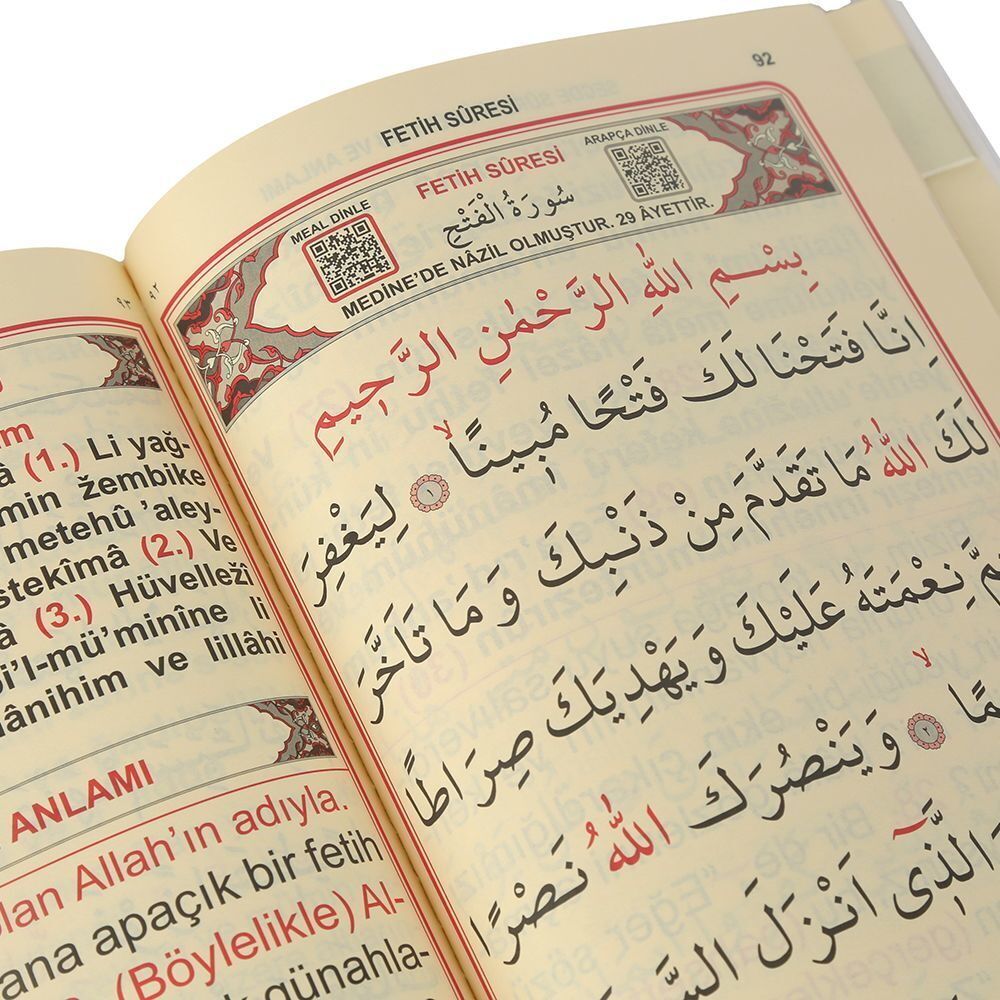 92
FETİH SÛRESİ
MEAL DİNLE
FETİH SÛRESİ
ARAPÇA DİNLE
سُورَةُ الْفَتْحِ
MEDİNE'DE NÂZİL OLMUŞTUR. 29 ÂYETTİR.
بِسْمِ اللّٰهِ الرَّحْمٰنِ الرَّحِيمِ
اِنَّا فَتَحْنَا لَكَ فَتْحًا مُبِينًاۙ ﴿١﴾ لِيَغْفِرَ
لَكَ اللّٰهُ مَا تَقَدَّمَ مِنْ ذَنْبِكَ وَمَا تَاَخَّرَ
نِعْمَتَهُ عَلَيْكَ وَيَهْدِيَكَ صِرَاطًا
﴿٢﴾ وَيَنْصُرَكَ اللّٰهُ نَصْرًا
الَّذِٓى اَنْزَلَ
(1.) Li yağ-
min žembike
metehû 'aley-
stekîmâ (2.) Ve
(3.) Hüvelležî
bi'l-mü'minîne li
mânihim ve lillâhi
ANLAMI
olan Allah'ın adıyla.
sana apaçık bir fetih
(Böylelikle) Al-
günahla-